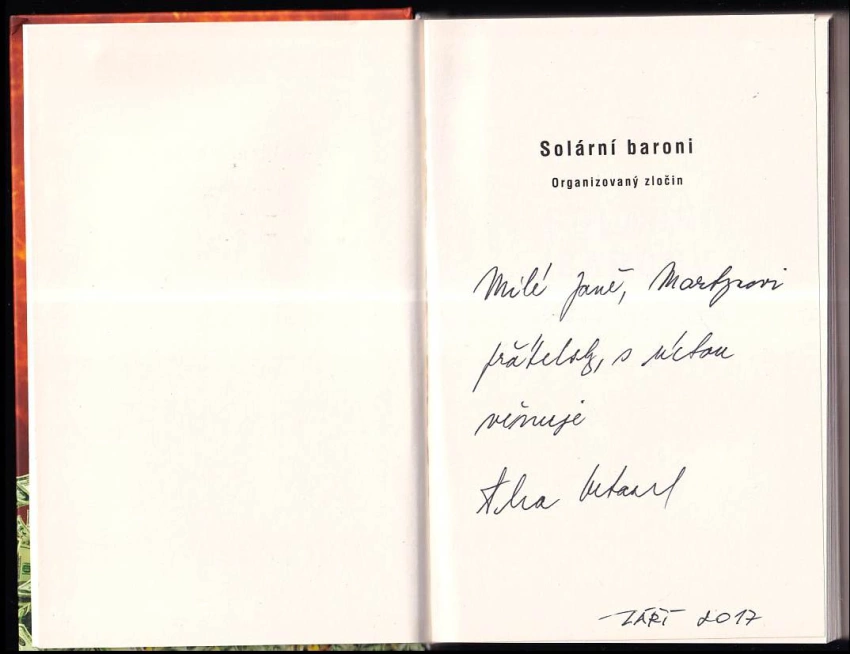 Solární baroni
Organizovaný zločin
Milé Janě, Martinovi
přátelsky, s úctou
věnuje
ZÁŘÍ 2017